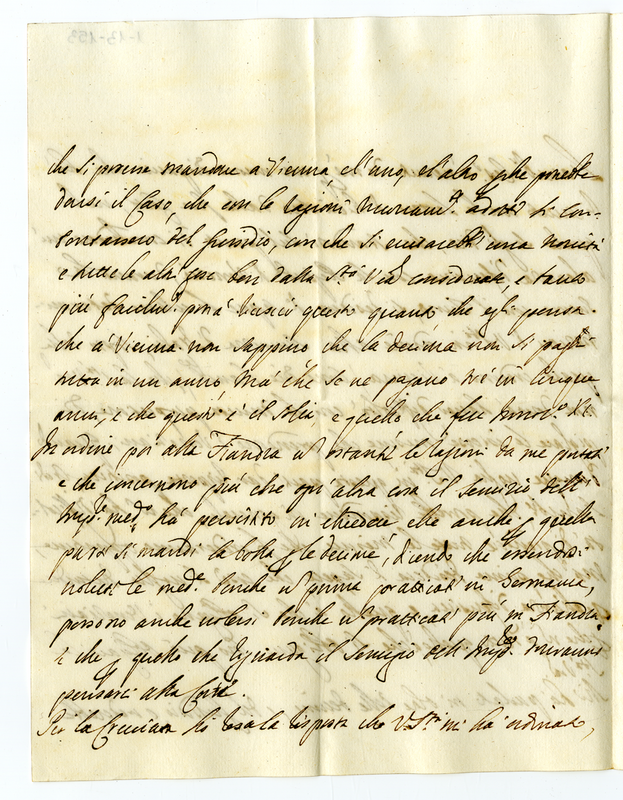 che si potesse mandare a Vienna el'uno, el'altro, perche potrebbe
darsi il Caso che con le ragioni nuovam.te addotte si con-
tentassero del sussidio, con che si evitarebbe una novità
e tutte le altre cose ben dalla S.tà V.ra considerate, e tanto
più facilm.te potrà riuscir questo quanto che egli pensa
che à Vienna non sappino che la decima non si paghi
tutta in un anno, mà che se ne pagano tré in Cinque
anni, e che questo è il solito, e quello che fece Innoc.o XI.
In ordine poi alla Fiandra n.
e che concernono più che ogn'altra cosa il servizio dell'
Imp.re med.o hà persistito in chiedere che anche p quella
parte si mandi la bolla p le decime, dicendo che essendosi
volute le med.e benche n prima pratticate in Germania,
possono anche volersi benche n pratticate più in Fiandra.
e che p quello che riguarda il servizio dell' Imp.re dovranno
pensarci alla Corte.
Per la Crociata hò resa la risposta che V. S.tà mi hà ordinata,